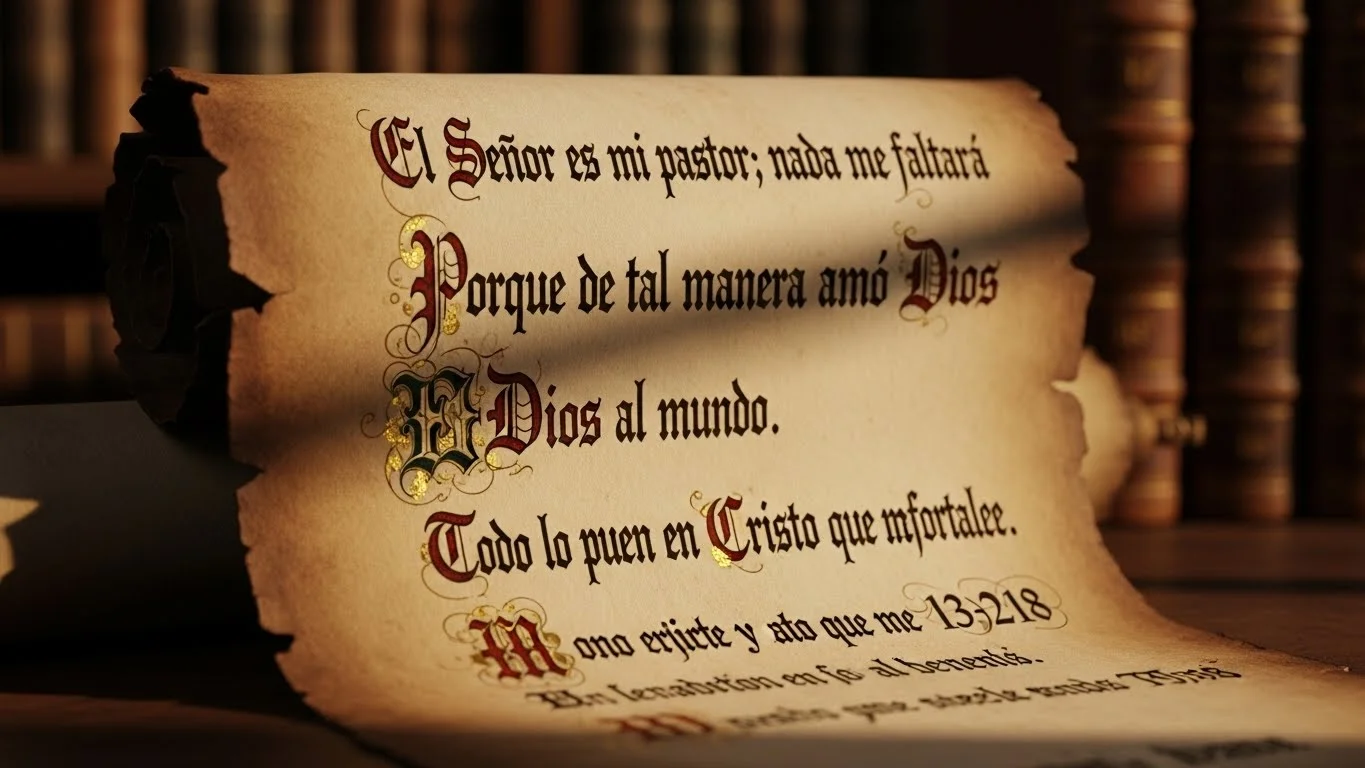 El Señor es mi pastor; nada me faltará
Porque de tal manera amó Dios
Dios al mundo.
Todo lo puen en Cristo que mfortalee.
Mono erjirte y ato que me 13;218
en al